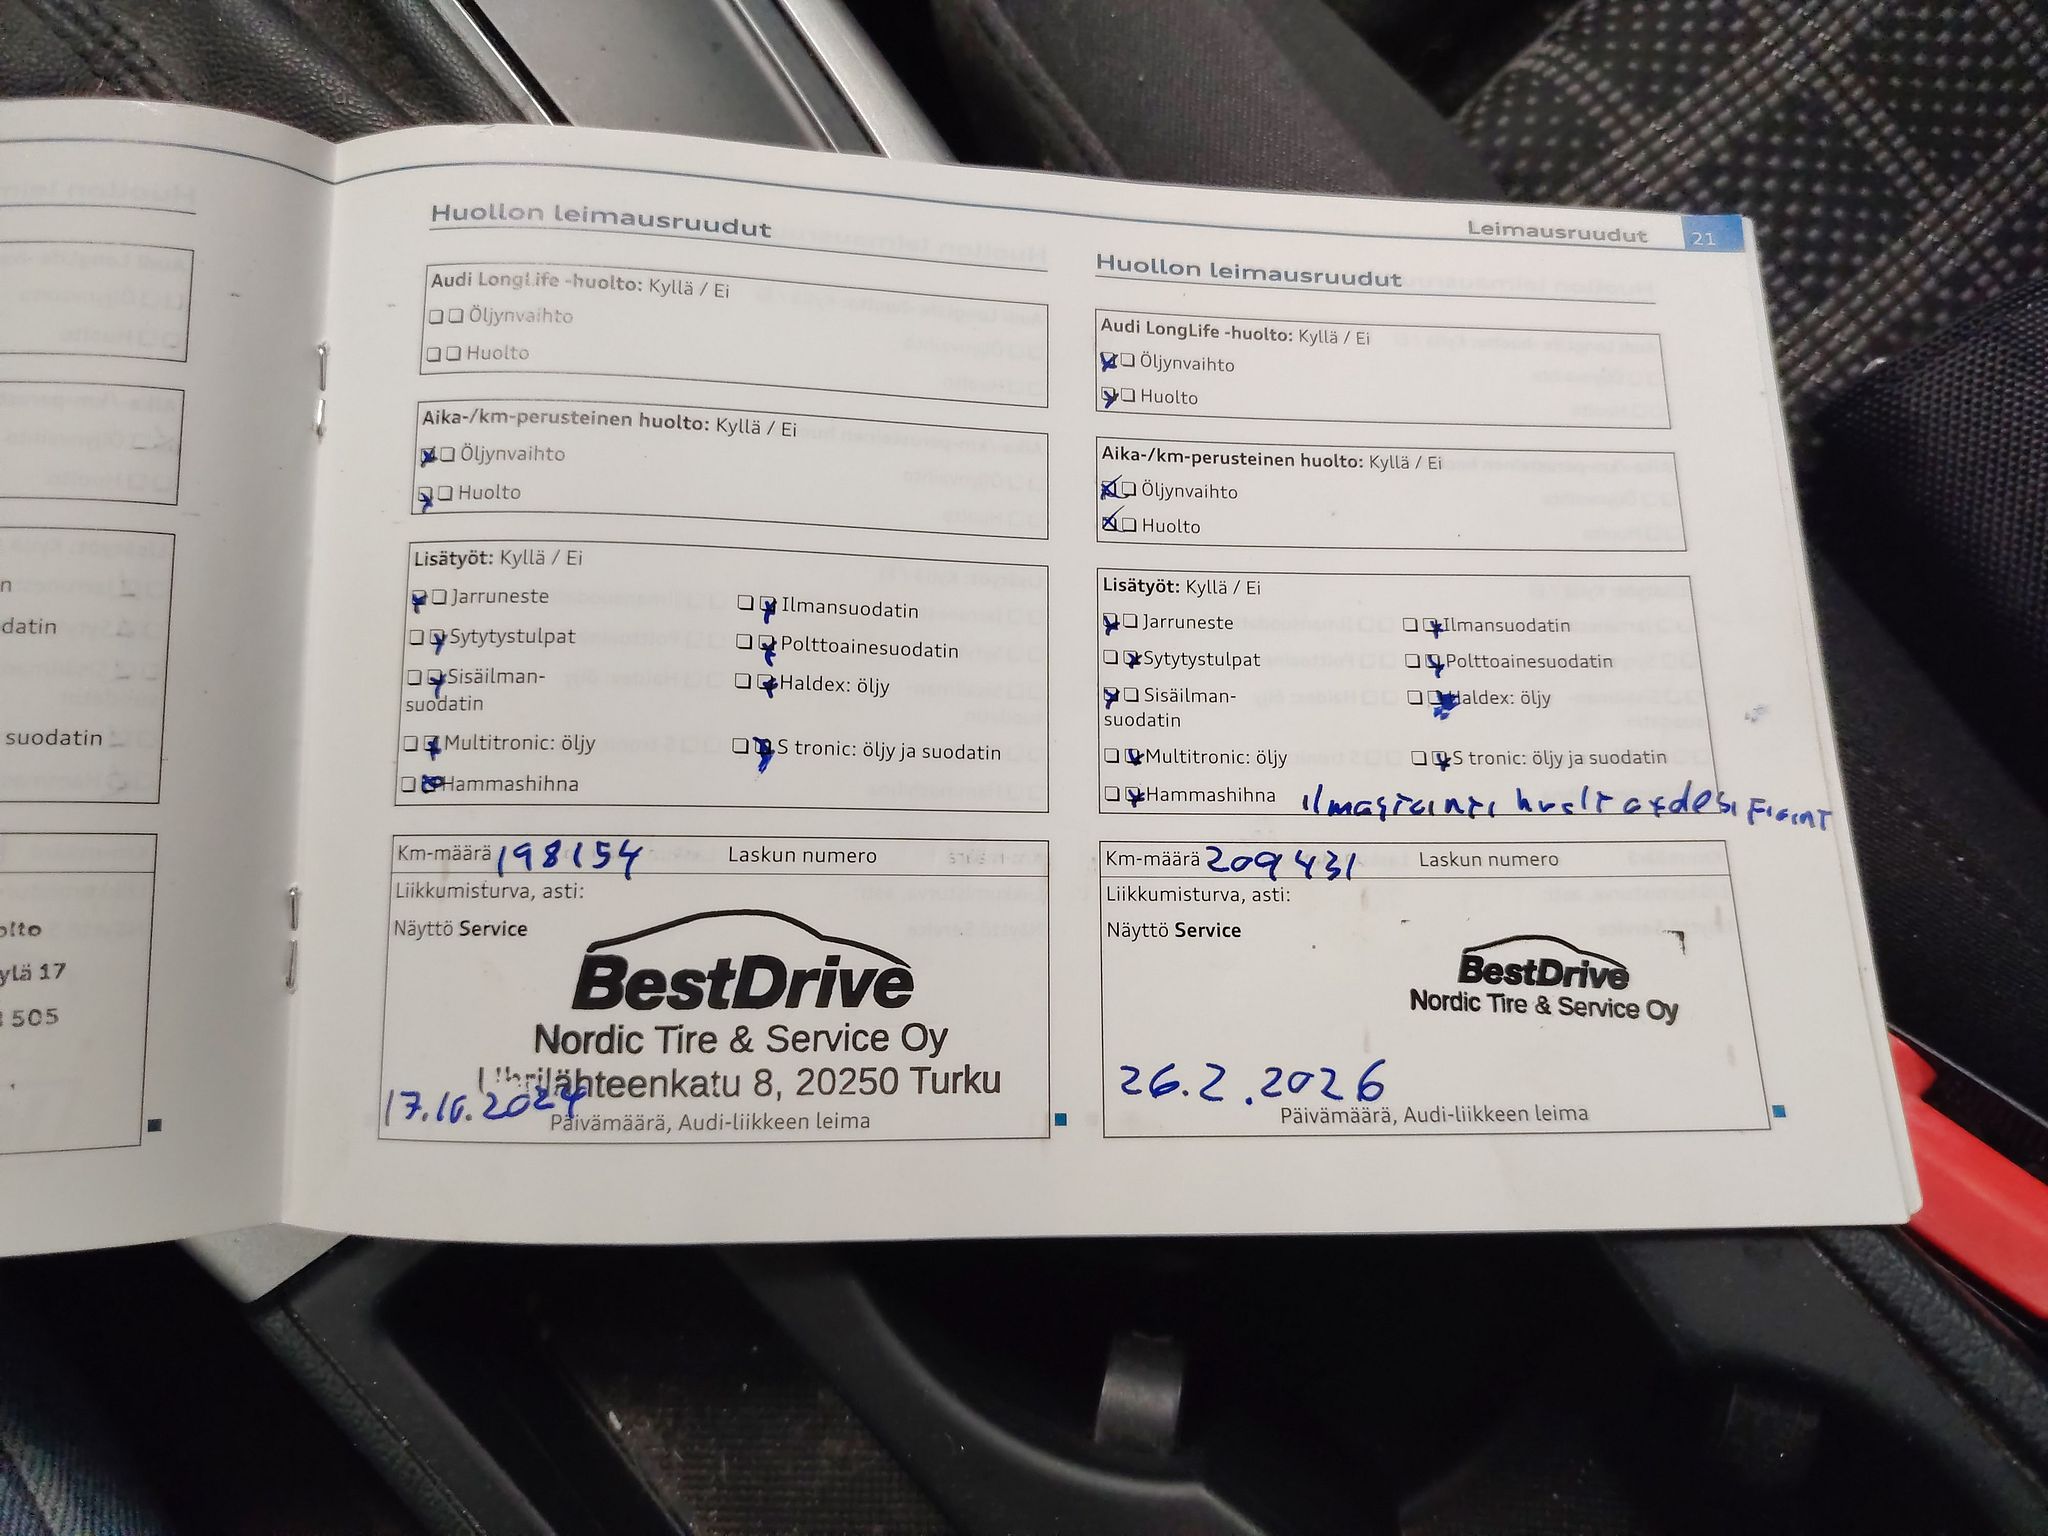 n
datin
suodatin
olto
ylä 17
505
Huollon leimausruudut
Audi LongLife -huolto: Kyllä / Ei
Öljynvaihto
Huolto
Aika-/km-perusteinen huolto: Kyllä / Ei
Öljynvaihto
Huolto
Lisätyöt: Kyllä / Ei
Jarruneste
Ilmansuodatin
Sytytystulpat
Polttoainesuodatin
Sisäilman-
suodatin
Haldex: öljy
Multitronic: öljy
S tronic: öljy ja suodatin
Hammashihna
Km-määrä 198154 Laskun numero
Liikkumisturva, asti:
Näyttö Service
BestDrive
Nordic Tire & Service Oy
8, 20250 Turku
17.10.2024
Päivämäärä, Audi-liikkeen leima
Leimausruudut 21
Huollon leimausruudut
Audi LongLife -huolto: Kyllä / Ei
Öljynvaihto
Huolto
Aika-/km-perusteinen huolto: Kyllä / Ei
Öljynvaihto
Huolto
Lisätyöt: Kyllä / Ei
Jarruneste
Ilmansuodatin
Sytytystulpat
Polttoainesuodatin
Sisäilman-
suodatin
Haldex: öljy
Multitronic: öljy
S tronic: öljy ja suodatin
Hammashihna
Km-määrä 209431 Laskun numero
Liikkumisturva, asti:
Näyttö Service
BestDrive
Nordic Tire & Service Oy
26.2.2026
Päivämäärä, Audi-liikkeen leima